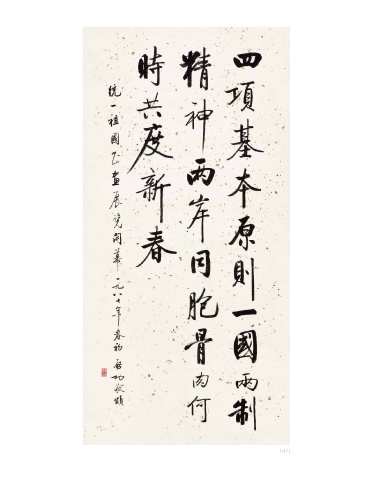 四項基本原則一國兩制
精神两岸同胞骨肉何
時共度新春
統一祖國书畫展覽開幕 一九八七年春初 啟功敬頌